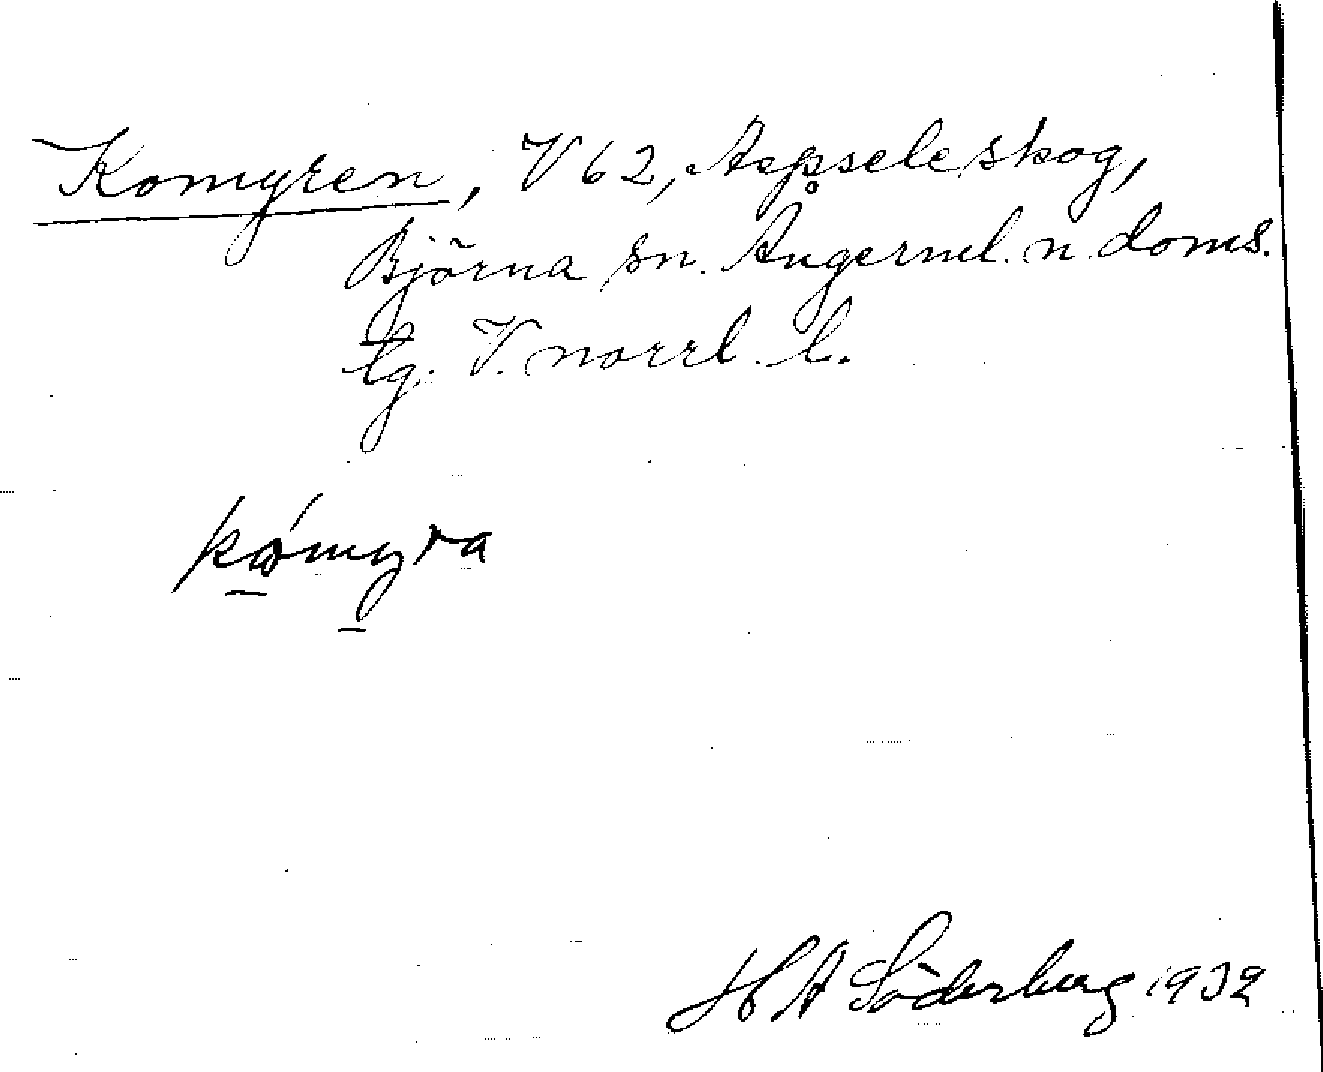 Komyren, V 62, Aspseleskog,
Björna sn. Ångerml. n. doms.
lg. V. norrl. l.
kómyra
H A Söderberg 1932